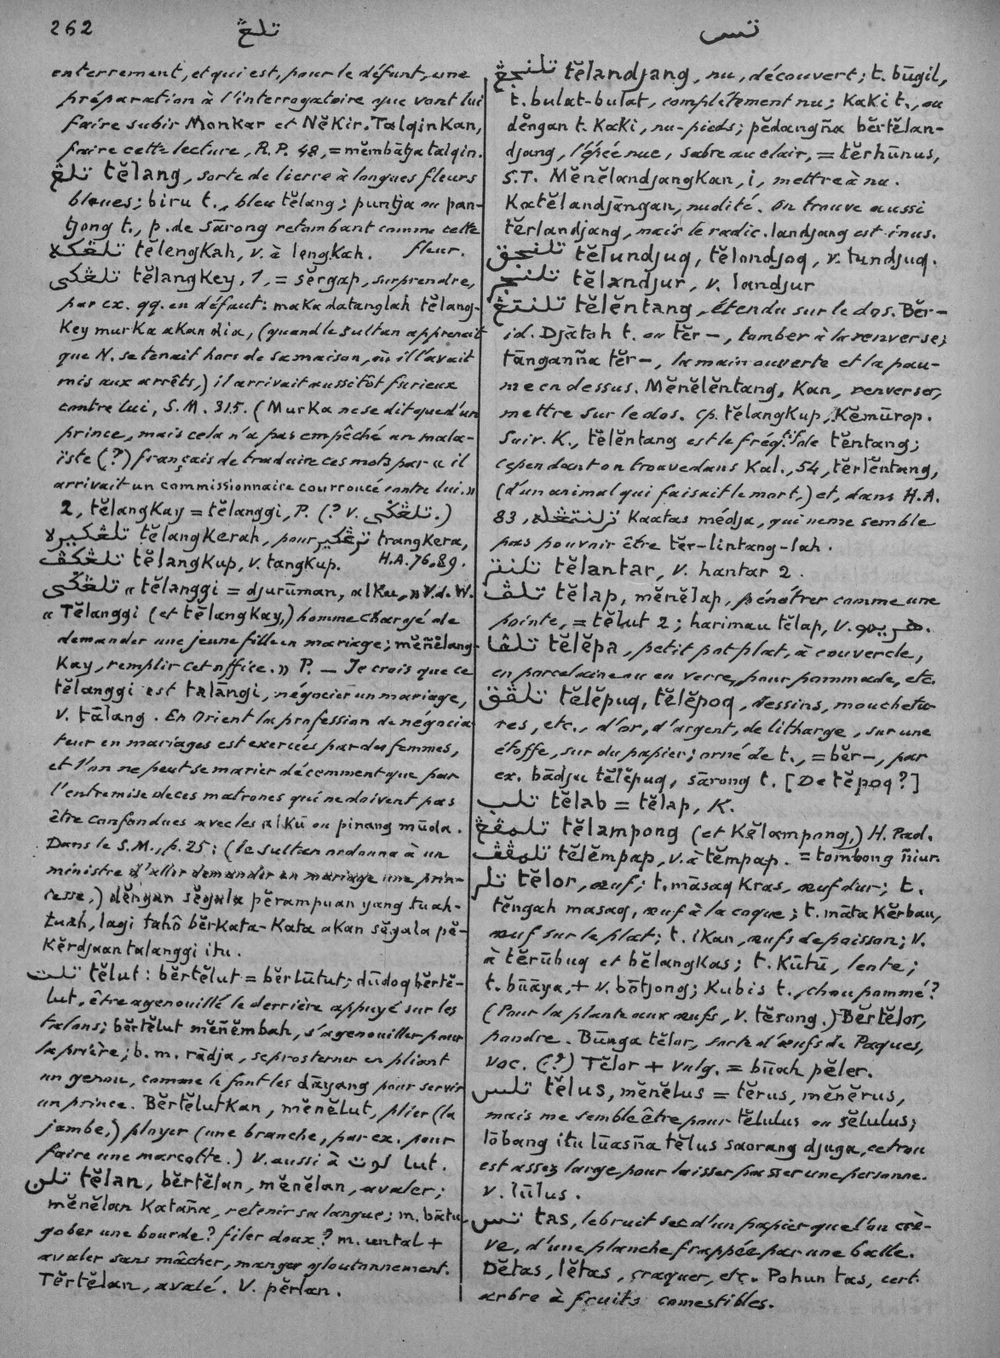 262
تلڠ
تس
enterrement, et qui est, pour le défunt, une
préparation à l'interrogatoire que vont lui
faire subir Monkar et Nĕkir. Talqinkan,
faire cette lecture, R.P. 48, = mĕmbāṭja talqin.
تلڠ tĕlang, sorte de lierre à longues fleurs
bleues; biru t., bleu tĕlang; punṭja ou pan-
ṭjong t., p. de sārong retombant comme cette
fleur.
تلڠكه tĕlengkah, v. à lengkah.
تلڠكي tĕlangkey, 1, = sĕrgap, surprendre,
par ex. qq. en défaut: maka datanglah tĕlang-
key murka akan dia, (quand le sultan apprenait
que N. se tenait hors de sa maison, où il l'avait
mis aux arrêts,) il arrivait aussitôt furieux
contre lui, S.M. 315. (Murka ne se dit que d'un
prince, mais cela n'a pas empêché un mala-
ïste (?) français de traduire ces mots par « il
arrivait un commissionnaire courroucé contre lui.»
2, tĕlangkay = tĕlanggi, P. (? v. تلڠكي.)
تلڠكيره tĕlangkerah, pour ترڠكير trangkera,
H.A. 76, 89.
تلڠكڤ tĕlangkup, v. tangkup.
تلڠݢي « tĕlanggi = djurūman, alku,» V.d.W.
« Tĕlanggi (et tĕlangkay,) homme chargé de
demander une jeune fille en mariage; mĕñĕlang-
kay, remplir cet office.» P. — Je crois que ce
tĕlanggi est talāngi, négocier un mariage,
v. tālang. En Orient la profession de négocia-
teur en mariages est exercée par des femmes,
et l'on ne peut se marier décemment que par
l'entremise de ces matrones qui ne doivent pas
être confondues avec les alkū ou pinang mūda.
Dans le S.M., p. 25: (le sultan ordonna à un
ministre d'aller demander en mariage une prin-
cesse,) dĕngan sĕgala pĕrampuan yang tuah-
tuah, lagi tahô bĕrkata-kata akan sĕgala pĕ-
kĕrdjaan talanggi itu.
تلت tĕlut: bĕrtĕlut = bĕrlūtut; dūdoq bĕrtĕ-
lut, être agenouillé le derrière appuyé sur les
talons; bĕrtĕlut mĕñĕmbah, s'agenouiller pour
la prière; b. m. rādja, se prosterner en pliant
un genou, comme le font les dāyang pour servir
un prince. Bĕrtĕlutkan, mĕnĕlut, plier (la
jambe,) ployer (une branche, par ex. pour
faire une marcotte.) V. aussi à لوت lut.
تلن tĕlan, bĕrtĕlan, mĕnĕlan, avaler;
mĕnĕlan kataña, retenir sa langue; m. bātu,
gober une bourde? filer doux? m. untal +
avaler sans mâcher, manger gloutonnement.
Tĕrtĕlan, avalé. V. pĕrlan.
تلنجڠ tĕlandjang, nu, découvert; t. būgil,
t. bulat-bulat, complètement nu; kaki t., ou
dĕngan t. kaki, nu-pieds; pĕdangña bĕrtĕlan-
djang, l'épée nue, sabre au clair, = tĕrhūnus,
S.T. Mĕnĕlandjangkan, i, mettre à nu.
Katĕlandjāngan, nudité. On trouve aussi
tĕrlandjang, mais le radic. landjang est inus.
تلنجق tĕlundjuq, tĕlondjoq, v. tundjuq.
تلنجر tĕlandjur, v. landjur
تلنتڠ tĕlĕntang, étendu sur le dos. Bĕr-
id. Djātoh t. ou tĕr-, tomber à la renverse;
tānganña tĕr-, la main ouverte et la pau-
me en dessus. Mĕnĕlĕntang, kan, renverser,
mettre sur le dos. Cp. tĕlangkup, kĕmūrop.
Suiv. K., tĕlĕntang est le fréq.tif de tĕntang;
cependant on trouve dans Kal., 54, tĕrlĕntang,
(d'un animal qui faisait le mort,) et, dans H.A.
83, ترلنتڠله kaatas médja, qui ne me semble
pas pouvoir être tĕr-lintang-lah.
تلنتر tĕlantar, v. hantar 2.
تلڤ tĕlap, mĕnĕlap, pénétrer comme une
pointe, = tĕlut 2; harimau tĕlap, v. هريمو.
تلڤا tĕlĕpa, petit pot plat, à couvercle,
en porcelaine ou en verre, pour pommade, etc.
تلڤق tĕlĕpuq, tĕlĕpoq, dessins, mouchetu-
res, etc., d'or, d'argent, de litharge, sur une
étoffe, sur du papier; orné de t., = bĕr-, par
ex. bādju tĕlĕpuq, sārong t. [De tĕpoq?]
تلب tĕlab = tĕlap, K.
تلمڤڠ tĕlampong (et kĕlampong,) H. Pad.
= tombong ñiur
تلمڤڤ tĕlĕmpap, v. à tĕmpap.
تلر tĕlor, œuf; t. māsaq kras, œuf dur; t.
tĕngah masaq, œuf à la coque; t. māta kĕrbau,
œuf sur le plat; t. ikan, œufs de poisson; v.
à tĕrūbuq et bĕlangkas; t. kūtū, lente;
t. būaya, + v. bōtjong; kubis t., chou pommé?
(Pour la plante aux œufs, v. tĕrong.) Bĕrtĕlor,
pondre. Būnga tĕlor, sorte d'œufs de Paques,
voc. (?) Tĕlor + vulg. = būah pĕler.
تلس tĕlus, mĕnĕlus = tĕrus, mĕnĕrus,
mais me semble être pour tĕlulus ou sĕlulus;
lōbang itu lūasña tĕlus saorang djuga, ce trou
est assez large pour laisser passer une personne.
v. lūlus.
تس tas, le bruit sec d'un papier que l'on crè-
ve, d'une planche frappée par une balle.
Dĕtas, lĕtas, craquer, etc. Pohun tas, cert.
arbre à fruits comestibles.